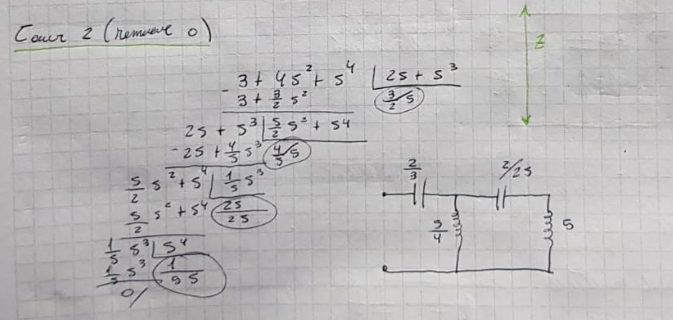 Cauer 2 (remueve 0)
Z
- 3 + 4s² + s⁴ | 2s + s³
3 + 3/2 s² 3/2s
2s + s³ | 5/2 s² + s⁴
- 2s + 4/5 s³ 4/5s
5/2 s² + s⁴ | 1/5 s³
5/2 s² + s⁴ 25/2s
1/5 s³ | s⁴
1/5 s³ 1/5s
0/
2/3 2/25
5/4 5